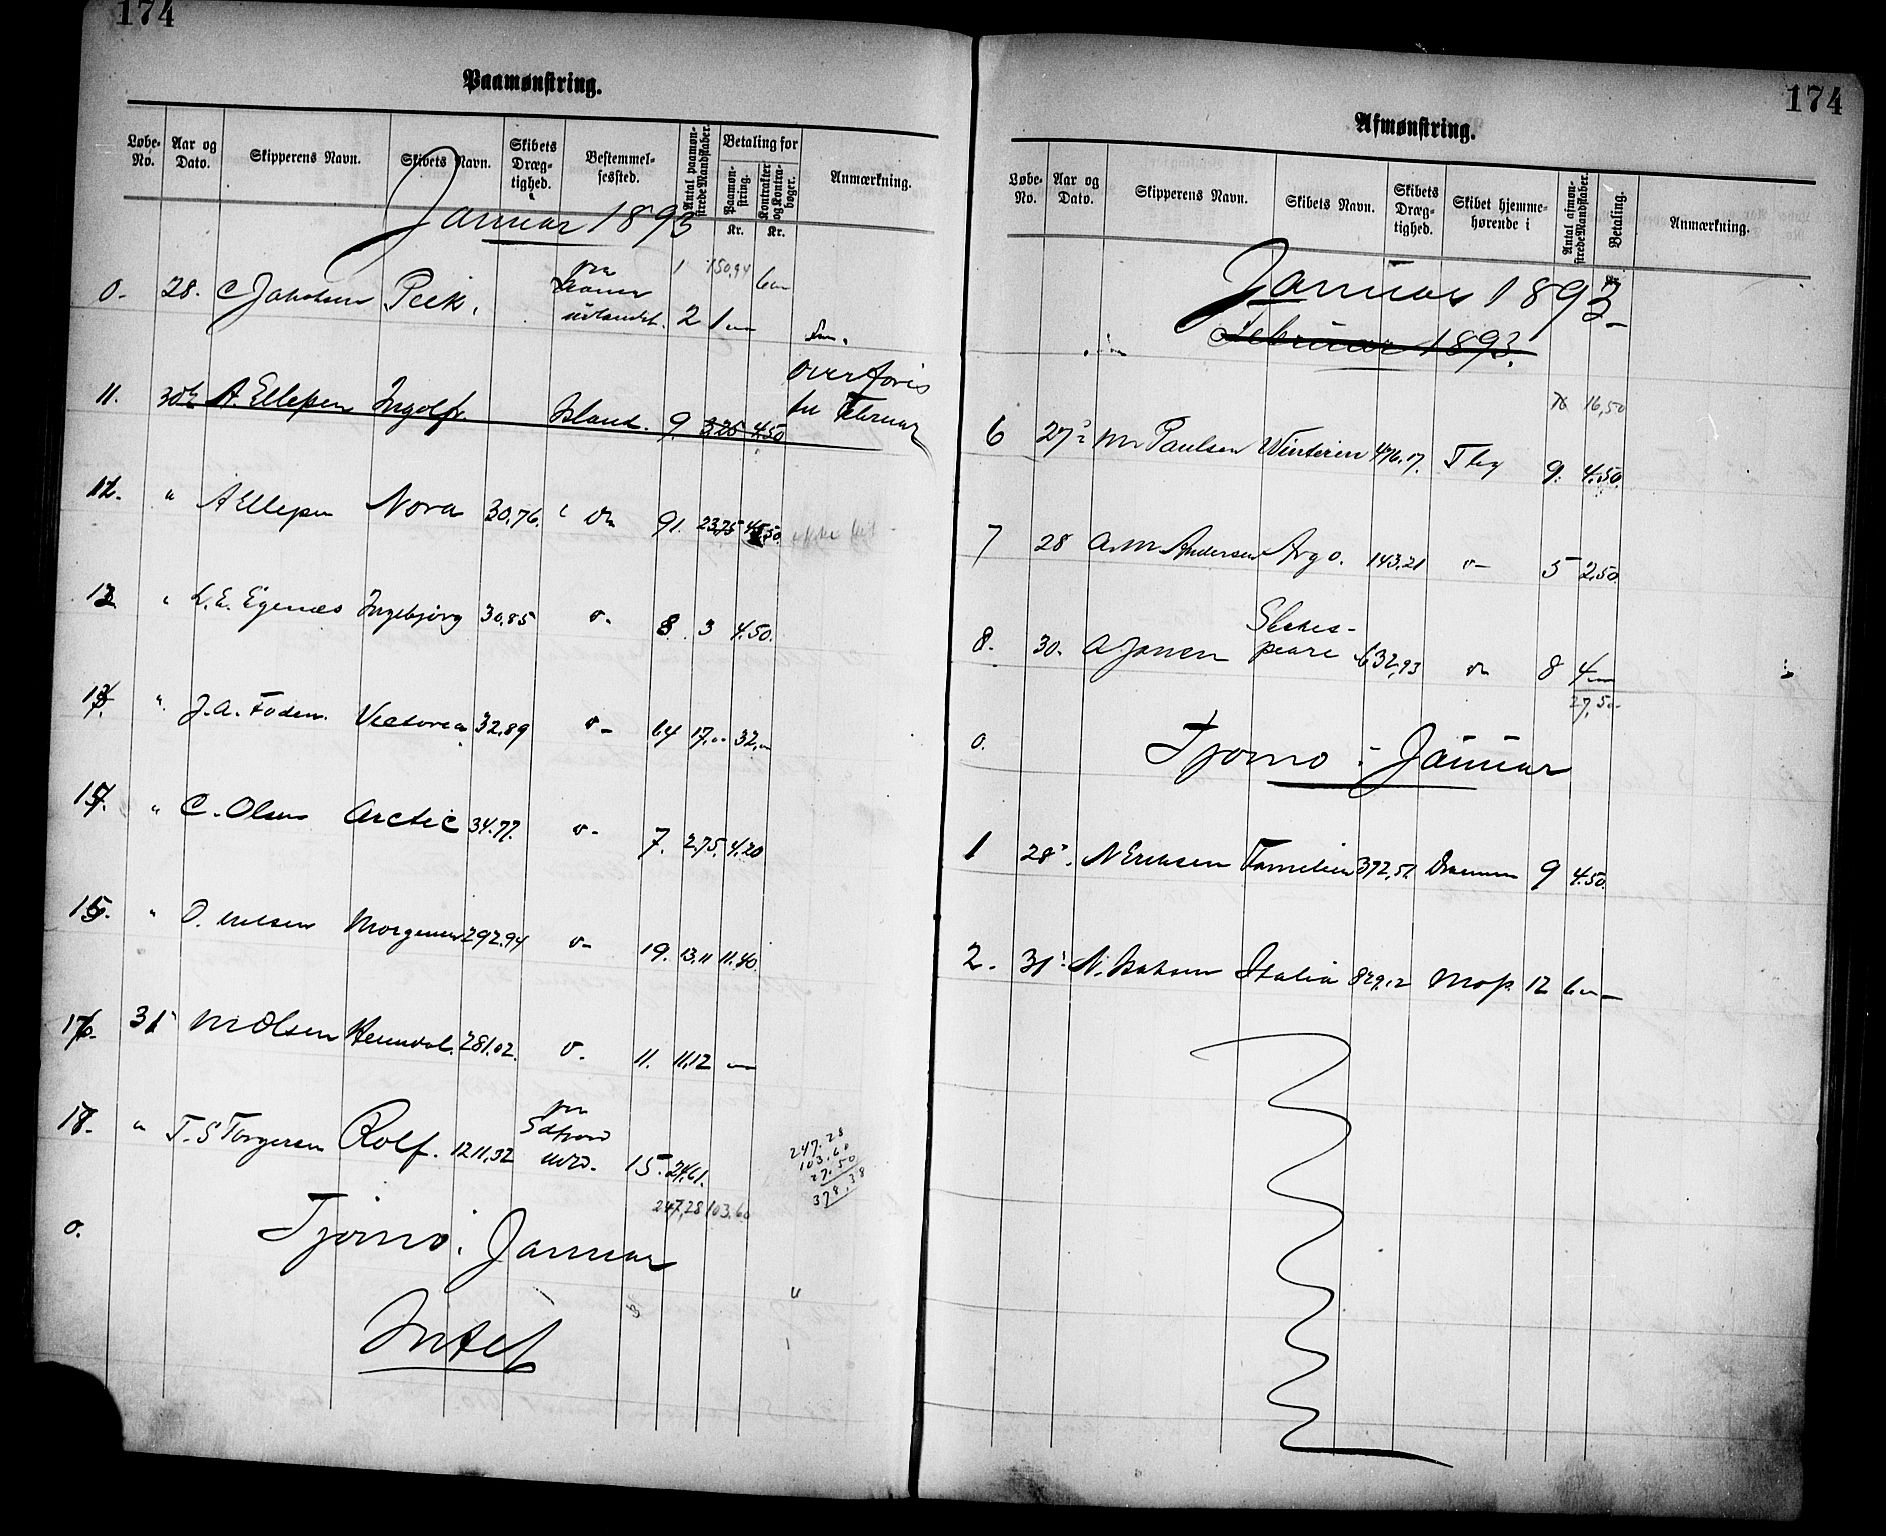 174
Paamønstring.
Løbe-No. Aar og Dato. Skipperens Navn. Skibets Navn. Skibets Dræg-tighed. Bestemmel-sessted. Antal paamøn-strede Mandskaber. Betaling for Paamøn-string. Kr. Kontrakter og Kontra-bøger. Kr. Anmærkning.
Januar 1893
1 150,94 6 "
0. 28. C Jakobsen Peik. udlandet. 2 1 "
11. 30te A. Ellefsen Ingolf. Island. 9. 2,25 4,50 overføres til Februar
12. " A Ellefsen Nora 30,76. do 91. 23,75 45,50.
13. " L. E. Egenæs Ingebjørg 30,85 do 8. 3 4,50.
" J. A. Foden. Victoria 32,89 do 64 17," 32,"
15. " C. Olsen Arctic 34,77. do 7. 2,75. 4,20
15. " O. Nilsen Morgenen 292,94 do 19. 13,11 11,40.
16. 31 M Olsen Heimdal. 281,02. do 11. 11,12 "
18. " T. S Torgersen Rolf. 1211,32 15. 24,61.
247,28 103,60
247.28
103.60
27.50
378.38
0. Tjømø i Januar
Intet
174
Afmønstring.
Løbe-No. Aar og Dato. Skipperens Navn. Skibets Navn. Skibets Dræg-tighed. Skibet hjemme-hørende i Antal afmøn-strede Mandskaber. Betaling. Anmærkning.
Januar 1893
Februar 1893.
16,50
6 27 M Paulsen 476,17. Tbg 9. 4,50.
7 28 A. M Andersen Argo. 143,21 do 5 2,50.
8. 30. A Jensen Shakes-peare 632,93 do 8 4 "
27,50
0. Tjømø i Januar
1 28 N Eriksen Familien 372,57 Drammen 9 4.50.
2. 31 N. Isaksen Italia 829,12 Moss 12 6 "